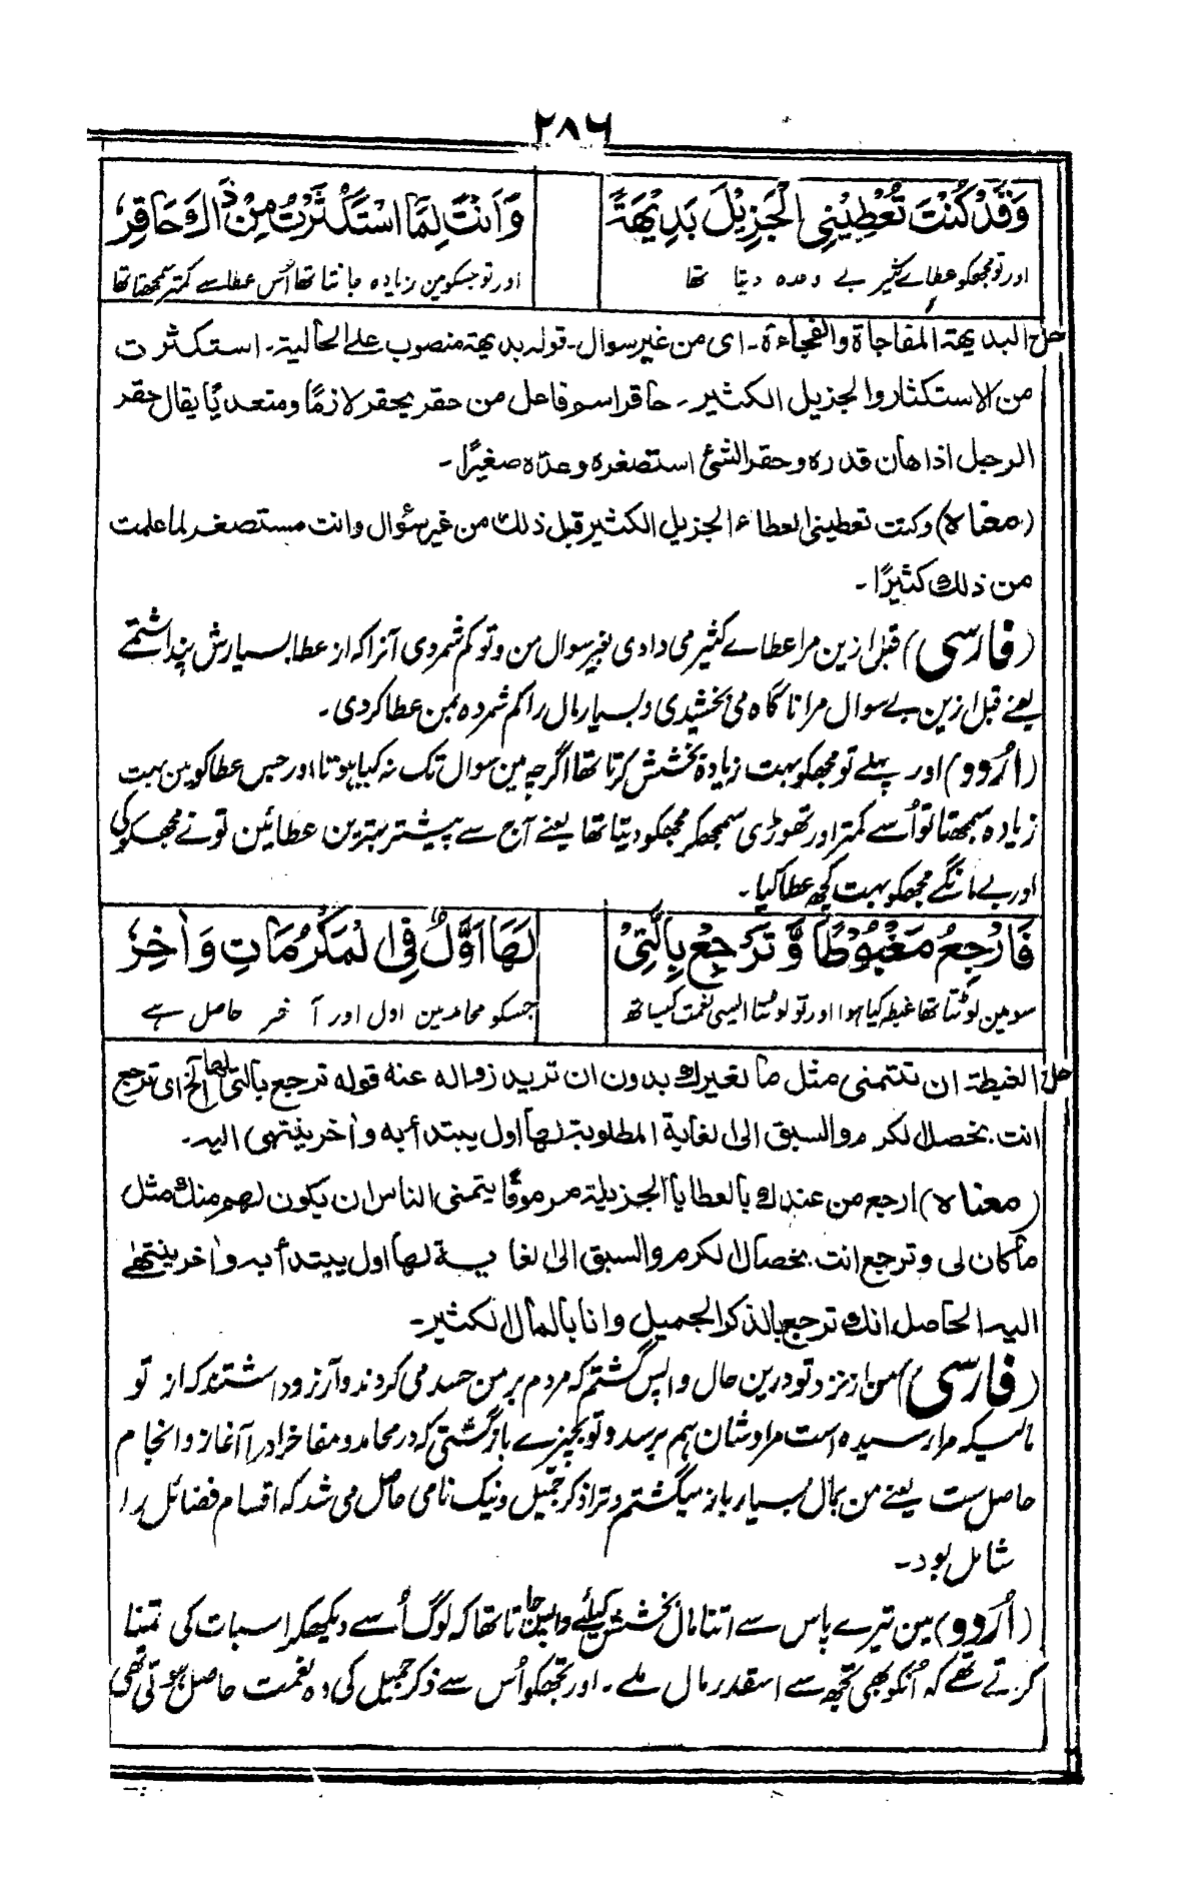 ٢٨٦
وَقَدْ كُنْتَ تُعْطِيْنِى الْجَزِيْلَ بَدِيْهَةً وَاَنْتَ لِمَا اسْتَكْثَرْتُ مِنْ ذَاكَ حَاقِرُ
اور تو مجھکو عطائے کثیر بے وعدہ دیتا تھا اور تو جسکو مین زیادہ جانتا تھا اُس عطا سے کمتر سمجھتا تھا
حل البديهة المفاجاة والفجاءة۔ اى من غير سوال۔ قوله بديهة منصوب على الحالية۔ استكثرت
من الاستكثار والجزيل الكثير۔ حاقر اسم فاعل من حقر يحقر لازمًا ومتعديًا يقال حقر
الرجل اذا هان قدره وحقر الشئ استصغره وعدّه صغيرًا۔
(معناه) وكنت تعطينى العطاء الجزيل الكثير قبل ذلك من غير سؤال وانت مستصغر لما علمت
من ذلك كثيرًا۔
(فارسی) قبل ازین مرا عطاے کثیر می دادی بغیر سوال من و تو کم شمردی آنرا کہ از عطا بسیارش پنداشتمے
یعنے قبل ازین بے سوال مرا ناگاہ می بخشیدی و بسیار مال را کم شمردہ بمن عطا کردی۔
(اُردو) اور پہلے تو مجھکو بہت زیادہ بخشش کرتا تھا اگرچہ مین سوال تک نہ کیا ہوتا اور جس عطا کو مین بہت
زیادہ سمجھتا تو اُسے کمتر اور تھوڑی سمجھکر مجھکو دیتا تھا یعنے آج سے پیشتر بہترین عطائین تو نے مجھکو کی
اور بے مانگے مجھکو بہت کچھ عطا کیا۔
فَارْجِعُ مَغْبُوْطًا وَّتَرْجِعُ بِالَّتِىْ لَهَا اَوَّلٌ فِى الْمَكْرُمَاتِ وَاٰخِرُ
سو مین لوٹتا تھا غبطہ کیا ہوا اور تو لوٹتا ایسی نعمت کیساتھ جسکو محامد مین اول اور آخر حاصل ہے
حل الغبطة ان تتمنى مثل ما لغيرك بدون ان تريد زواله عنه قوله ترجع بالتى لها الخ اى ترجع
انت بخصال الكرم والسبق الى الغاية المطلوبة لها اول يبتدأ به واٰخر ينتهى اليه۔
(معناه) ارجع من عندك بالعطايا الجزيلة مرموقًا يتمنى الناس ان يكون لهم منك مثل
ما كان لى وترجع انت بخصال الكرم والسبق الى الغاية لها اول يبتدأ به واٰخر ينتهى
اليه الحاصل انك ترجع بالذكر الجميل وانا بالمال الكثير۔
(فارسی) من از نزد تو درین حال واپس گشتم کہ مردم بر من حسد می کردند و آرزو داشتند کہ از تو
مالیکہ مرا رسیدہ است مر ادشان ہم برسد و تو بچیزے بازگشتی کہ در محامد و مفاخر ادرا آغاز و انجام
حاصل ست یعنے من بمال بسیار باز میگشتم و ترا ذکر جمیل و نیک نامی حاصل می شد کہ اقسام فضائل را
شامل بود۔
(اُردو) مین تیرے پاس سے اتنا مال بخشش کیلئے واپس جاتا تھا کہ لوگ اُسے دیکھکر اسبات کی تمنا
کرتے تھے کہ اُنکو بھی تجھ سے اسقدر مال ملے۔ اور تجھکو اُس سے ذکر جمیل کی وہ نعمت حاصل ہوتی تھی